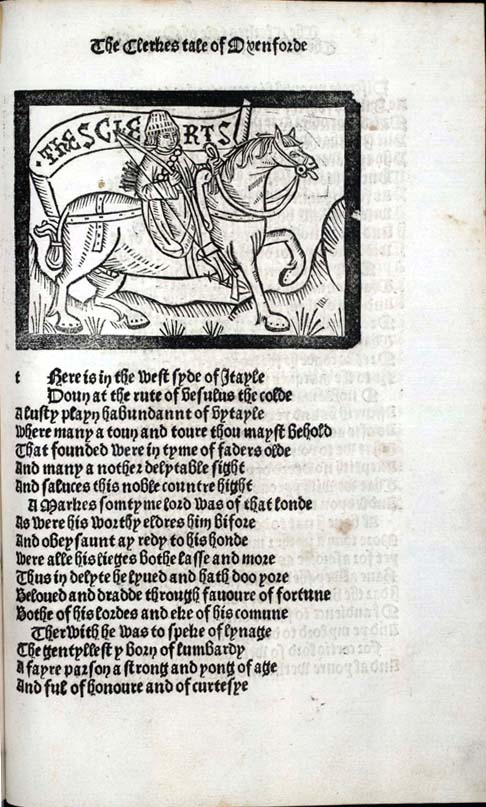 The Clerkes tale of Oxenforde
THESCLE RTS
t Here is in the west syde of Itayle
Doun at the rute of vesulus the colde
A lusty playn habundannt of vytayle
where many a toun and toure thou mayst behold
That founded were in tyme of faders olde
And many a nother delytable sight
And saluces this noble countre hight
A Markes somtyme lord was of that londe
As were his worthy eldres him bifore
And obeysaunt ay redy to his honde
were alle his lieges bothe lasse and more
Thus in delyte he lyued and hath doo yore
Beloued and dradde through fauoure of fortune
Bothe of his lordes and eke of his comune
Ther with he was to speke of lynage
The gentyllest y born of lumbardy
A fayre parson a strong and yong of age
And ful of honoure and of curtesye